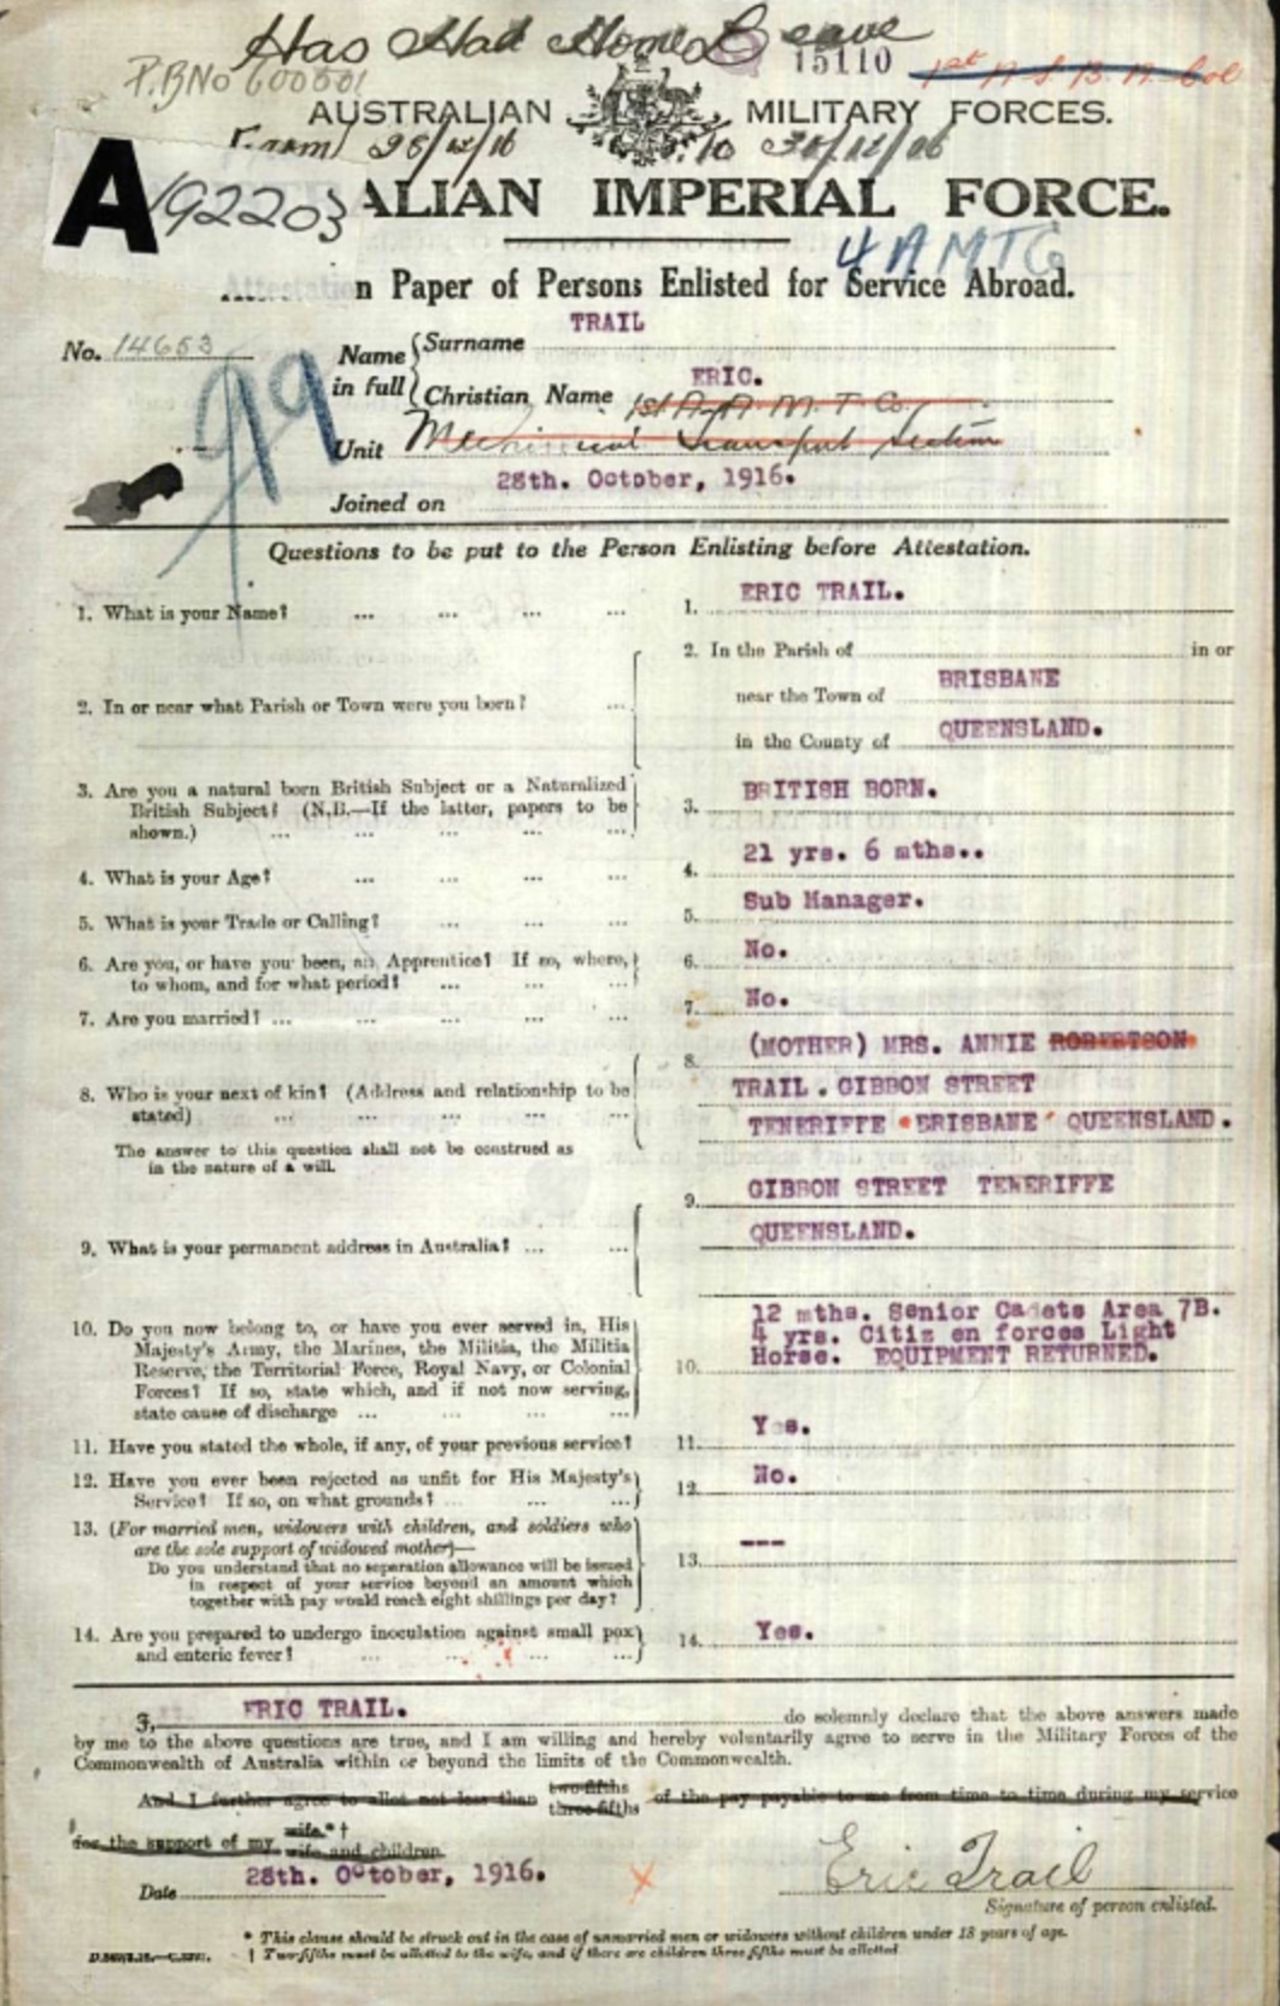 Has Had Home Leave
15110
P.B No 600501
AUSTRALIAN MILITARY FORCES.
From 28/12/16 to
A 192203
ALIAN IMPERIAL FORCE.
4 AMTC
n Paper of Persons Enlisted for Service Abroad.
No. 14653
Name in full { Surname TRAIL
Christian Name ERIC.
1st A.A.M.T. Co.
Unit Mechanical Transport Section
99
Joined on 28th. October, 1916.
Questions to be put to the Person Enlisting before Attestation.
1. What is your Name? ... ... ... ... 1. ERIC TRAIL.
2. In or near what Parish or Town were you born? ... 2. In the Parish of in or
near the Town of BRISBANE
in the County of QUEENSLAND.
3. Are you a natural born British Subject or a Naturalized
British Subject? (N.B.—If the latter, papers to be
shown.) ... ... ... ... ... 3. BRITISH BORN.
4. What is your Age? ... ... ... ... 4. 21 yrs. 6 mths..
5. What is your Trade or Calling? ... ... ... 5. Sub Manager.
6. Are you, or have you been, an Apprentice? If so, where,
to whom, and for what period? ... ... ... 6. No.
7. Are you married? ... ... ... ... ... 7. No.
8. Who is your next of kin? (Address and relationship to be
stated) ... ... ... ... ...
The answer to this question shall not be construed as
in the nature of a will.
8. (MOTHER) MRS. ANNIE ROBERTSON
TRAIL. GIBBON STREET
TENERIFFE BRISBANE QUEENSLAND.
9. What is your permanent address in Australia? ... ...
9. GIBBON STREET TENERIFFE
QUEENSLAND.
10. Do you now belong to, or have you ever served in, His
Majesty's Army, the Marines, the Militia, the Militia
Reserve, the Territorial Force, Royal Navy, or Colonial
Forces? If so, state which, and if not now serving,
state cause of discharge ... ... ... ...
10. 12 mths. Senior Cadets Area 7B.
4 yrs. Citiz en forces Light
Horse. EQUIPMENT RETURNED.
11. Have you stated the whole, if any, of your previous service? 11. Yes.
12. Have you ever been rejected as unfit for His Majesty's
Service? If so, on what grounds? ... ... ... 12. No.
13. (For married men, widowers with children, and soldiers who
are the sole support of widowed mother)—
Do you understand that no separation allowance will be issued
in respect of your service beyond an amount which
together with pay would reach eight shillings per day?
13. ---
14. Are you prepared to undergo inoculation against small pox
and enteric fever? ... ... ... ... 14. Yes.
I, ERIC TRAIL. do solemnly declare that the above answers made
by me to the above questions are true, and I am willing and hereby voluntarily agree to serve in the Military Forces of the
Commonwealth of Australia within or beyond the limits of the Commonwealth.
And I further agree to allot not less than two-fifths three-fifths of the pay payable to me from time to time during my service
for the support of my wife * † wife and children
Date 28th. October, 1916.
Eric Trail
Signature of person enlisted.
* This clause should be struck out in the case of unmarried men or widowers without children under 18 years of age.
† Two-fifths must be allotted to the wife, and if there are children three-fifths must be allotted